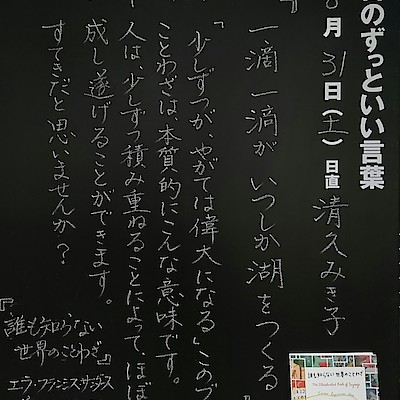 のずっといい言葉
月31日(土)日直 清久みき子
『一滴一滴が いつしか湖をつくる
「少しずつが、やがては偉大になる」このブ
ことわざは、本質的にこんな意味です。
人は、少しずつ積み重ねることによって、ほぼ
成し遂げることができます。
すてきだと思いませんか？
『誰も知らない
世界のことわざ』
エラ・フランシス・サンダース
誰も知らない世界のことわざ